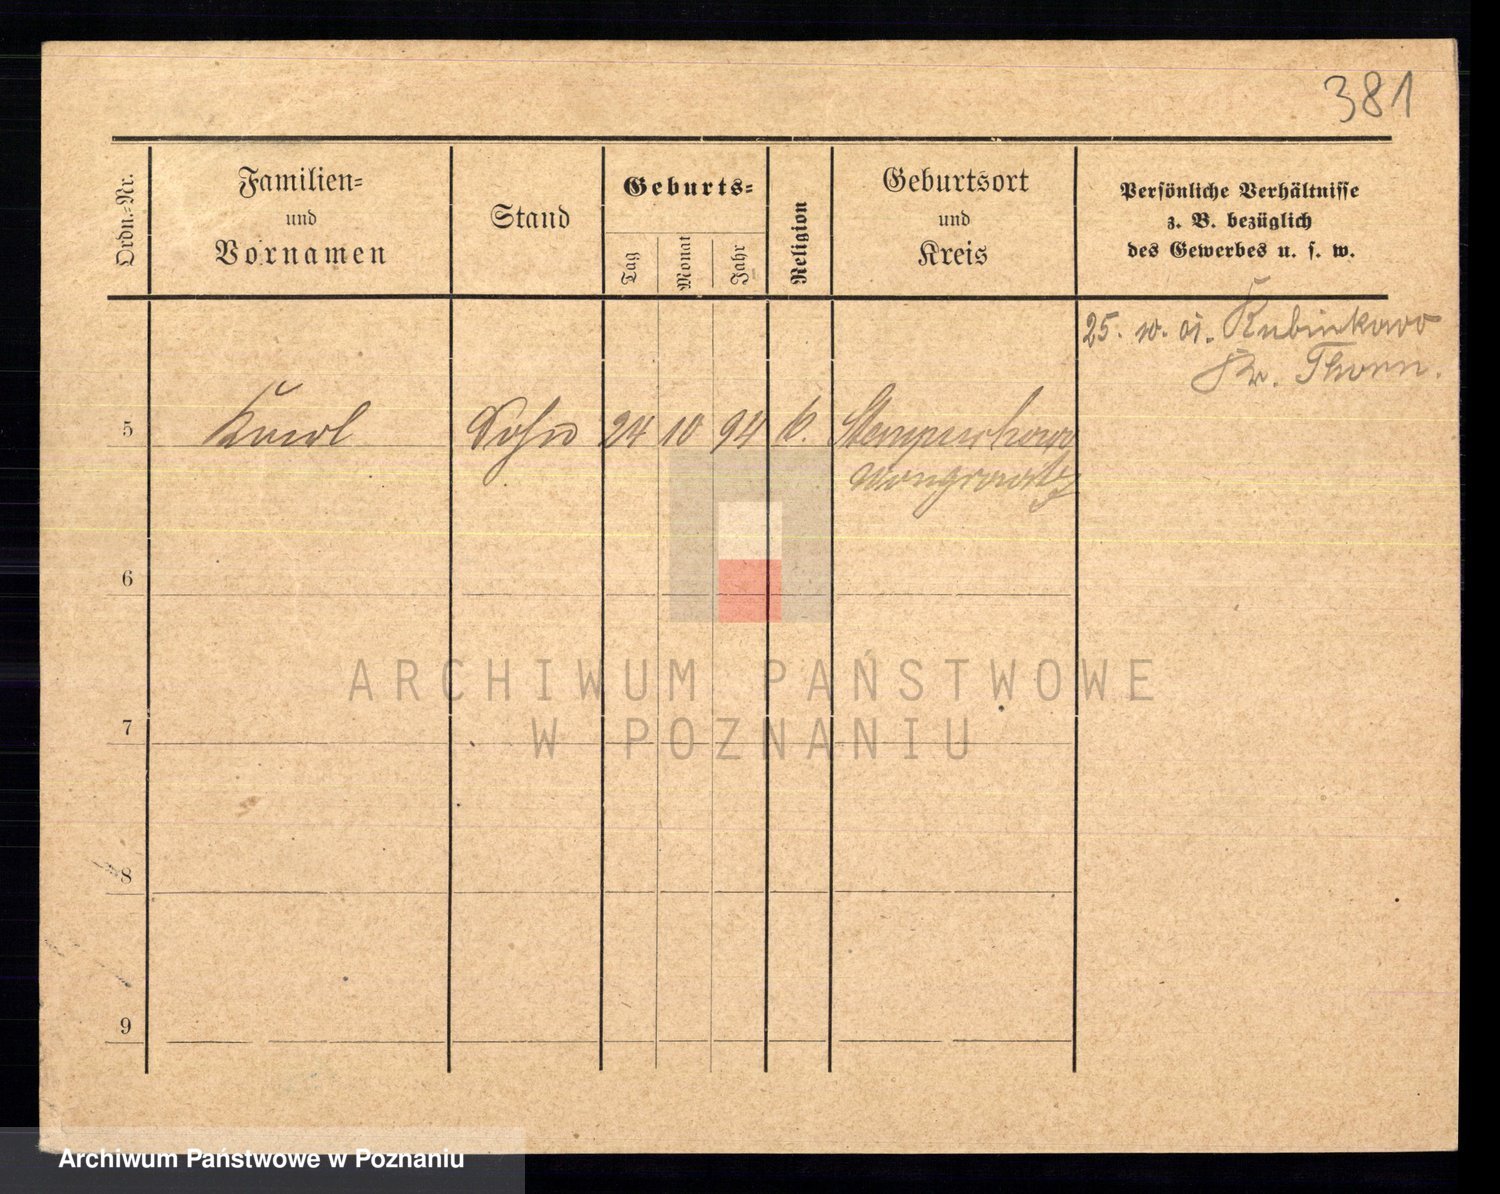 381
Ordn.-Nr.
Familien-
und
Vornamen
Stand
Geburts-
Tag
Monat
Jahr
Religion
Geburtsort
und
Kreis
Persönliche Verhältnisse
z. B. bezüglich
des Gewerbes u. s. w.
25. 10. 01. Rubinkowo
Kr. Thorn.
5 Karl Sohn 24 10 94 k. Stempuchowo
Wongrowitz
6
7
8
9
ARCHIWUM PAŃSTWOWE
W POZNANIU
Archiwum Państwowe w Poznaniu